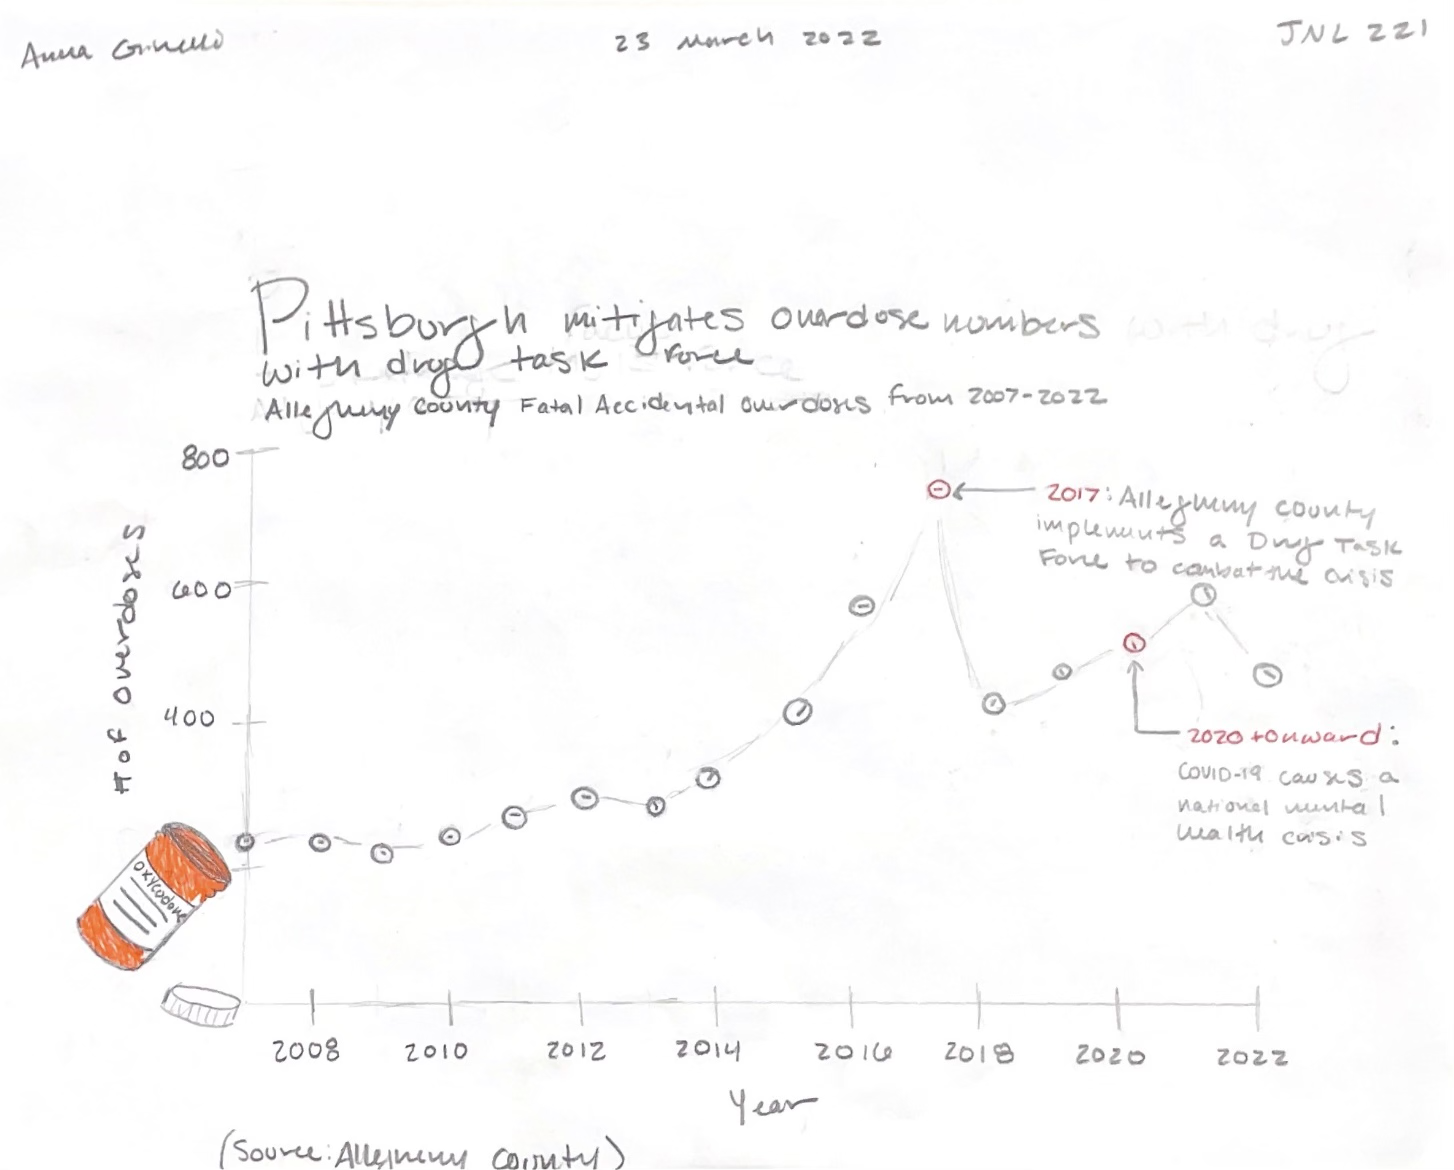 Anna Grinello
23 March 2022
JNL 221
Pittsburgh mitigates overdose numbers
with drug task force
Allegheny County Fatal Accidental overdoses from 2007-2022
800
600
400
# of overdoses
2017: Allegheny county
implements a Drug Task
Force to combat the crisis
2020 + onward:
COVID-19 causes a
national mental
health crisis
oxycodone
2008
2010
2012
2014
2016
2018
2020
2022
Year
(Source: Allegheny County)